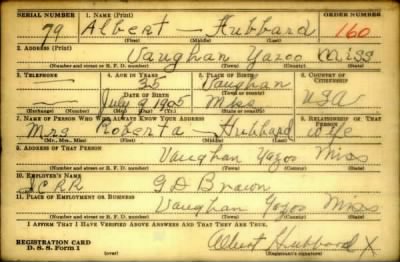 SERIAL NUMBER 1. NAME (Print) ORDER NUMBER
79 Albert — Hubbard 160
(First) (Middle) (Last)
2. ADDRESS (Print)
Vaughan Yazoo Miss
(Number and street or R. F. D. number) (Town) (County) (State)
3. TELEPHONE 4. AGE IN YEARS 5. PLACE OF BIRTH 6. COUNTRY OF CITIZENSHIP
— 35 Vaughan
DATE OF BIRTH (Town or county)
— July 9 1905 Miss USA
(Exchange) (Number) (Mo.) (Day) (Yr.) (State or country)
7. NAME OF PERSON WHO WILL ALWAYS KNOW YOUR ADDRESS 8. RELATIONSHIP OF THAT PERSON
Mrs Roberta — Hubbard wife
(Mr., Mrs., Miss) (First) (Middle) (Last)
9. ADDRESS OF THAT PERSON
Vaughan Yazoo Miss
(Number and street or R. F. D. number) (Town) (County) (State)
10. EMPLOYER'S NAME
I.C.R.R. G D Brown
11. PLACE OF EMPLOYMENT OR BUSINESS
Vaughan Yazoo Miss
(Number and street or R. F. D. number) (Town) (County) (State)
I AFFIRM THAT I HAVE VERIFIED ABOVE ANSWERS AND THAT THEY ARE TRUE.
REGISTRATION CARD
D. S. S. Form 1 Albert Hubbard X
(Registrant's signature)